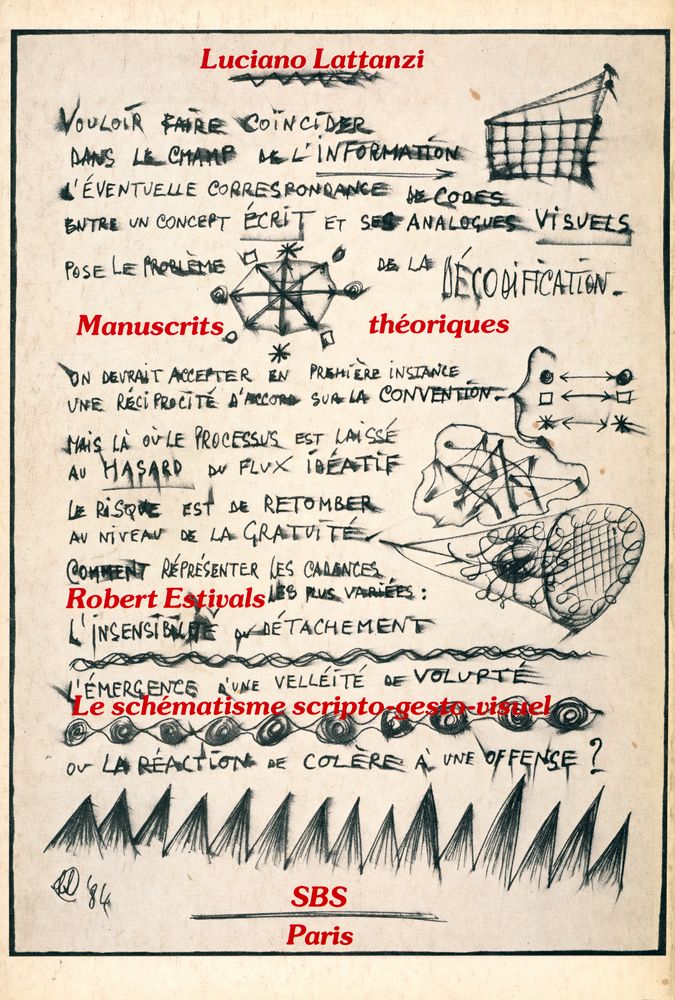 Luciano Lattanzi
VOULOIR FAIRE COÏNCIDER
DANS LE CHAMP DE L'INFORMATION
L'ÉVENTUELLE CORRESPONDANCE DE CODES
ENTRE UN CONCEPT ÉCRIT ET SES ANALOGUES VISUELS
POSE LE PROBLÈME DE LA DÉCODIFICATION.
Manuscrits théoriques
ON DEVRAIT ACCEPTER EN PREMIÈRE INSTANCE
UNE RÉCIPROCITÉ D'ACCORD SUR LA CONVENTION.
MAIS LÀ OÙ LE PROCESSUS EST LAISSÉ
AU HASARD DU FLUX IDÉATIF
LE RISQUE EST DE RETOMBER
AU NIVEAU DE LA GRATUITÉ.
COMMENT RÉPRÉSENTER LES CADENCES
Robert Estivals LES PLUS VARIÉES :
L'INSENSIBILITÉ DU DÉTACHEMENT
L'ÉMERGENCE D'UNE VELLÉITÉ DE VOLUPTÉ
Le schématisme scripto-gesto-visuel
OU LA RÉACTION DE COLÈRE À UNE OFFENSE ?
'84
SBS
Paris